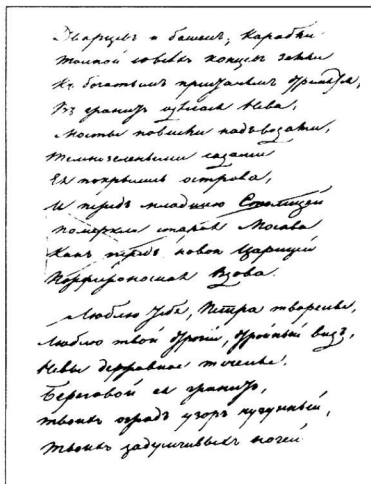 Дворцевъ и башенъ; карабли
Толпой со всѣхъ концевъ земли
Къ богатымъ пристанямъ стремятся;
Въ гранитъ одѣлася Нева;
Мосты повисли надъ водами;
Темнозелеными садами
Ея покрылись острова,
И предъ младшею Столицей
Померкла старая Москва
Какъ предъ новой Царицей
Порфироносная Вдова.
Люблю тебя, Петра творенье,
Люблю твой строгій, стройный видъ,
Невы державное теченье,
Береговой ея гранитъ,
Твоихъ оградъ узоръ чугунный,
Твоихъ задумчивыхъ ночей